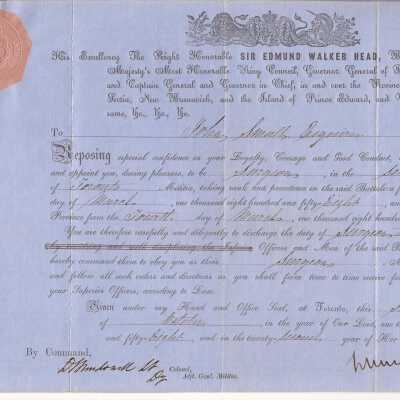 His Excellency The Right Honorable SIR EDMUND WALKER HEAD,
Majesty's Most Honorable Privy Council, Governor General of
and Captain General and Governor in Chief, in and over the Province
Scotia, New Brunswick, and the Island of Prince Edward, and
same, &c., &c., &c.
To John Esquire
Reposing especial confidence in your Loyalty, Courage and Good Conduct,
and appoint you, during pleasure, to be Surgeon, in the
of Toronto Militia, taking rank and precedence in the said Battalion
day of March, one thousand eight hundred and fifty-Eight, and
Province from the Fourth day of March, one thousand eight hundred
You are therefore carefully and diligently to discharge the duty of Surgeon
Officers and Men of the said
hereby command them to obey you as their Surgeon,
and follow all such orders and directions as you shall from time to time receive
your Superior Officers, according to Law.
Given under my Hand and Office Seal, at Toronto, this
of October in the year of Our Lord, one
and fifty-Eight, and in the twenty-second year of Her
By Command,
Colonel,
Adjt. Genl. Militia.